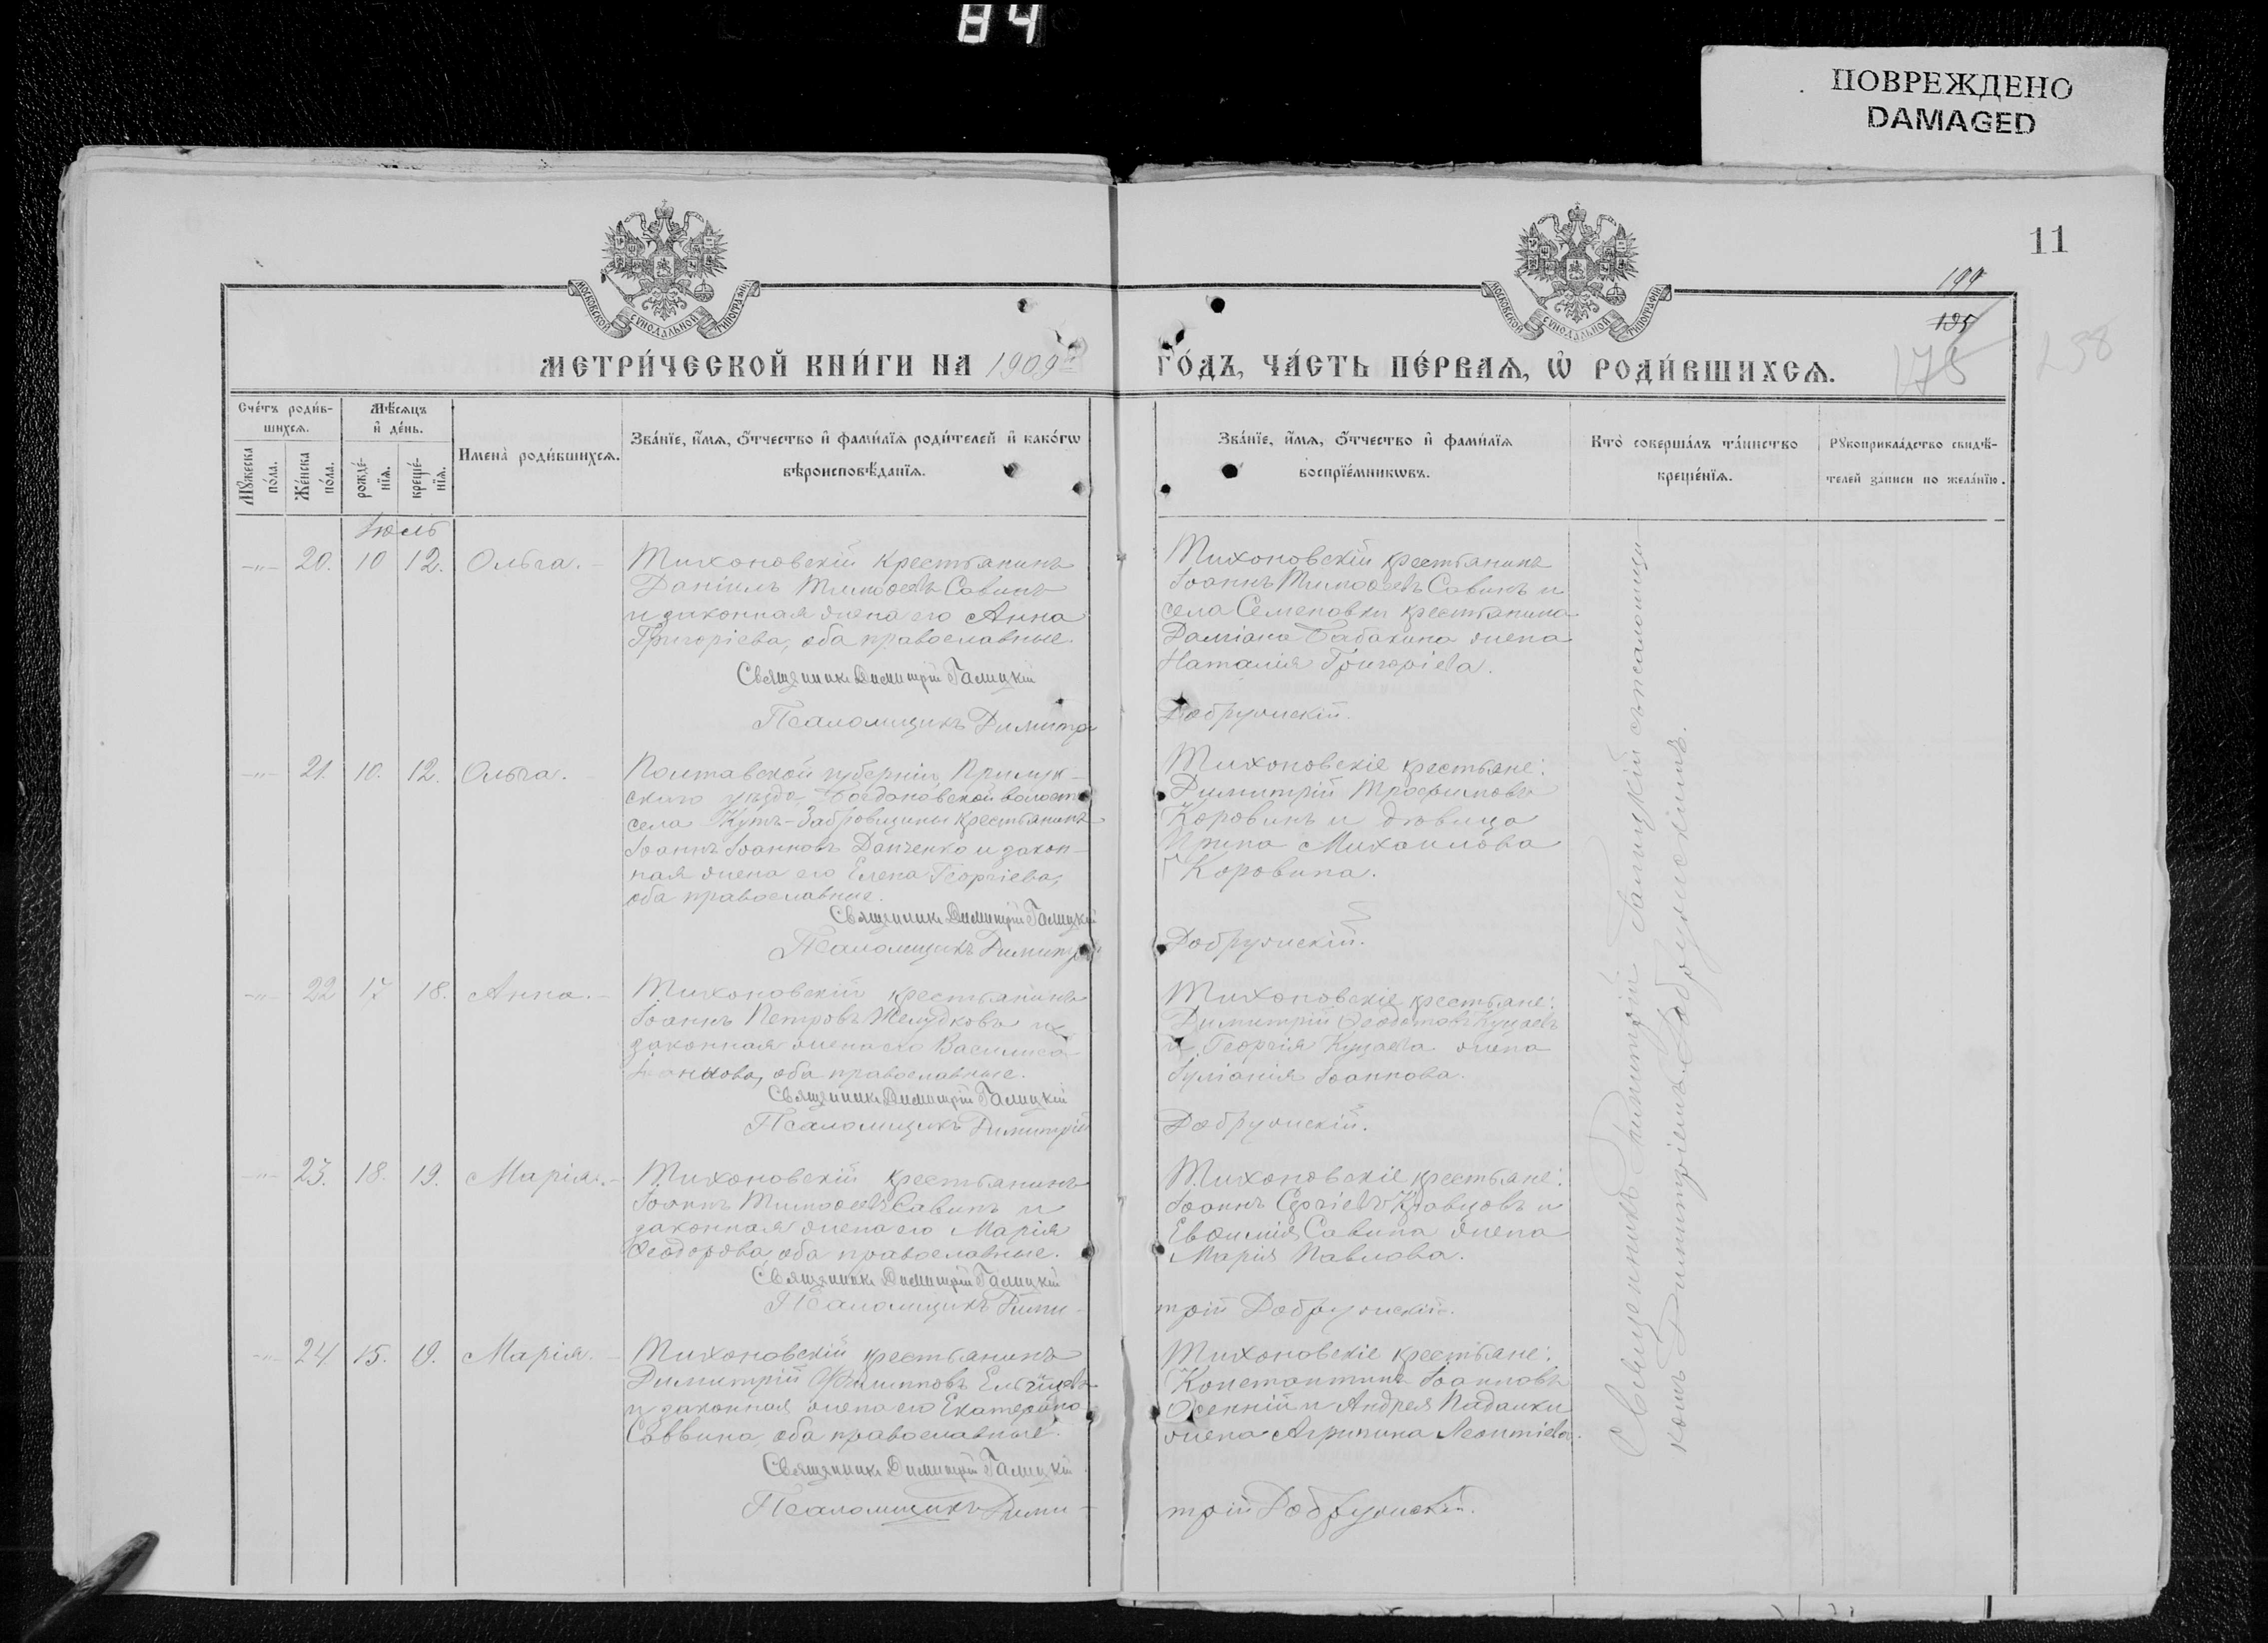 84
ПОВРЕЖДЕНО
DAMAGED
11
199
195
175
258
МОСКОВСКОЙ СУНОДАЛЬНОЙ ТИПОГРАФІИ
МОСКОВСКОЙ СУНОДАЛЬНОЙ ТИПОГРАФІИ
МЕТРИ́ЧЕСКОЙ КНИ́ГИ НА 1909 ГО́ДЪ, ЧА́СТЬ ПЕ́РВАѦ, Ѡ҆ РОДИ́ВШИХСѦ.
Сче́тъ роди́в-
шихсѧ.
Мѣ́сѧцъ
и҆ де́нь.
Мꙋ́жеска
по́ла.
Же́нска
по́ла.
рожде́-
нїѧ.
креще́-
нїѧ.
Имена̀ роди́вшихсѧ.
Зва́нїе, и҆́мѧ, ѻ҆́тчество и҆ фами́лїѧ роди́телей и҆ како́гѡ
вѣроисповѣ́данїѧ.
Зва́нїе, и҆́мѧ, ѻ҆́тчество и҆ фами́лїѧ
воспрїе́мникѡвъ.
Кто̀ соверша́лъ та́инство
креще́нїѧ.
Рꙋкоприкла́дство свидѣ́-
телей за́писи по жела́нїю.
Іюль
-"- 20. 10 12. Ольга.
Тихоновскій крестьянинъ
Даніилъ Тимоѳеевъ Савинъ
и законная жена его Анна
Григоріева, оба православные.
Священникъ Димитрій Галицкій
Псаломщикъ Димитрій
Тихоновскій крестьянинъ
Іоаннъ Тимоѳеевъ Савинъ и
села Семеновки крестьянина
Даміана Бабакина жена
Наталія Григоріева.
Добружскій.
-"- 21. 10. 12. Ольга.
Полтавской губерніи, Прилук-
скаго уѣзда, Богдановской волости
села Кутъ-Забровщины крестьянинъ
Іоаннъ Іоанновъ Данченко и закон-
ная жена его Елена Георгіева,
оба православные.
Священникъ Димитрій Галицкій
Псаломщикъ Димитрій
Тихоновскіе крестьяне:
Димитрій Трофимовъ
Коровинъ и дѣвица
Ирина Михаилова
Коровина.
Добружскій.
-"- 22 17 18. Анна.
Тихоновскій крестьянинъ
Іоаннъ Петровъ Желудковъ и
законная жена его Василиса
Іоаннова, оба православные.
Священникъ Димитрій Галицкій
Псаломщикъ Димитрій
Тихоновскіе крестьяне:
Димитрій Ѳеодотовъ Куцаевъ
и Георгія Куцаева жена
Іуліанія Іоаннова.
Добружскій.
-"- 23. 18. 19. Марія.
Тихоновскій крестьянинъ
Іоаннъ Тимоѳеевъ Савинъ и
законная жена его Марія
Ѳеодорова, оба православные.
Священникъ Димитрій Галицкій
Псаломщикъ Дими-
Тихоновскіе крестьяне:
Іоаннъ Сергіевъ Кравцовъ и
Евѳимія Савина жена
Марія Павлова.
трій Добружскій.
-"- 24 15. 19. Марія.
Тихоновскій крестьянинъ
Димитрій Филипповъ
и законная жена его Екатерина
Саввина, оба православные.
Священникъ Димитрій Галицкій
Псаломщикъ Дими-
Тихоновскіе крестьяне:
Константинъ Іоанновъ
Осенній и Андрея Падалки
жена Агрипина Леонтіева.
трій Добружскій.
Священникъ Димитрій Галицкій съ псаломщи-
комъ Димитріемъ Добружскимъ.